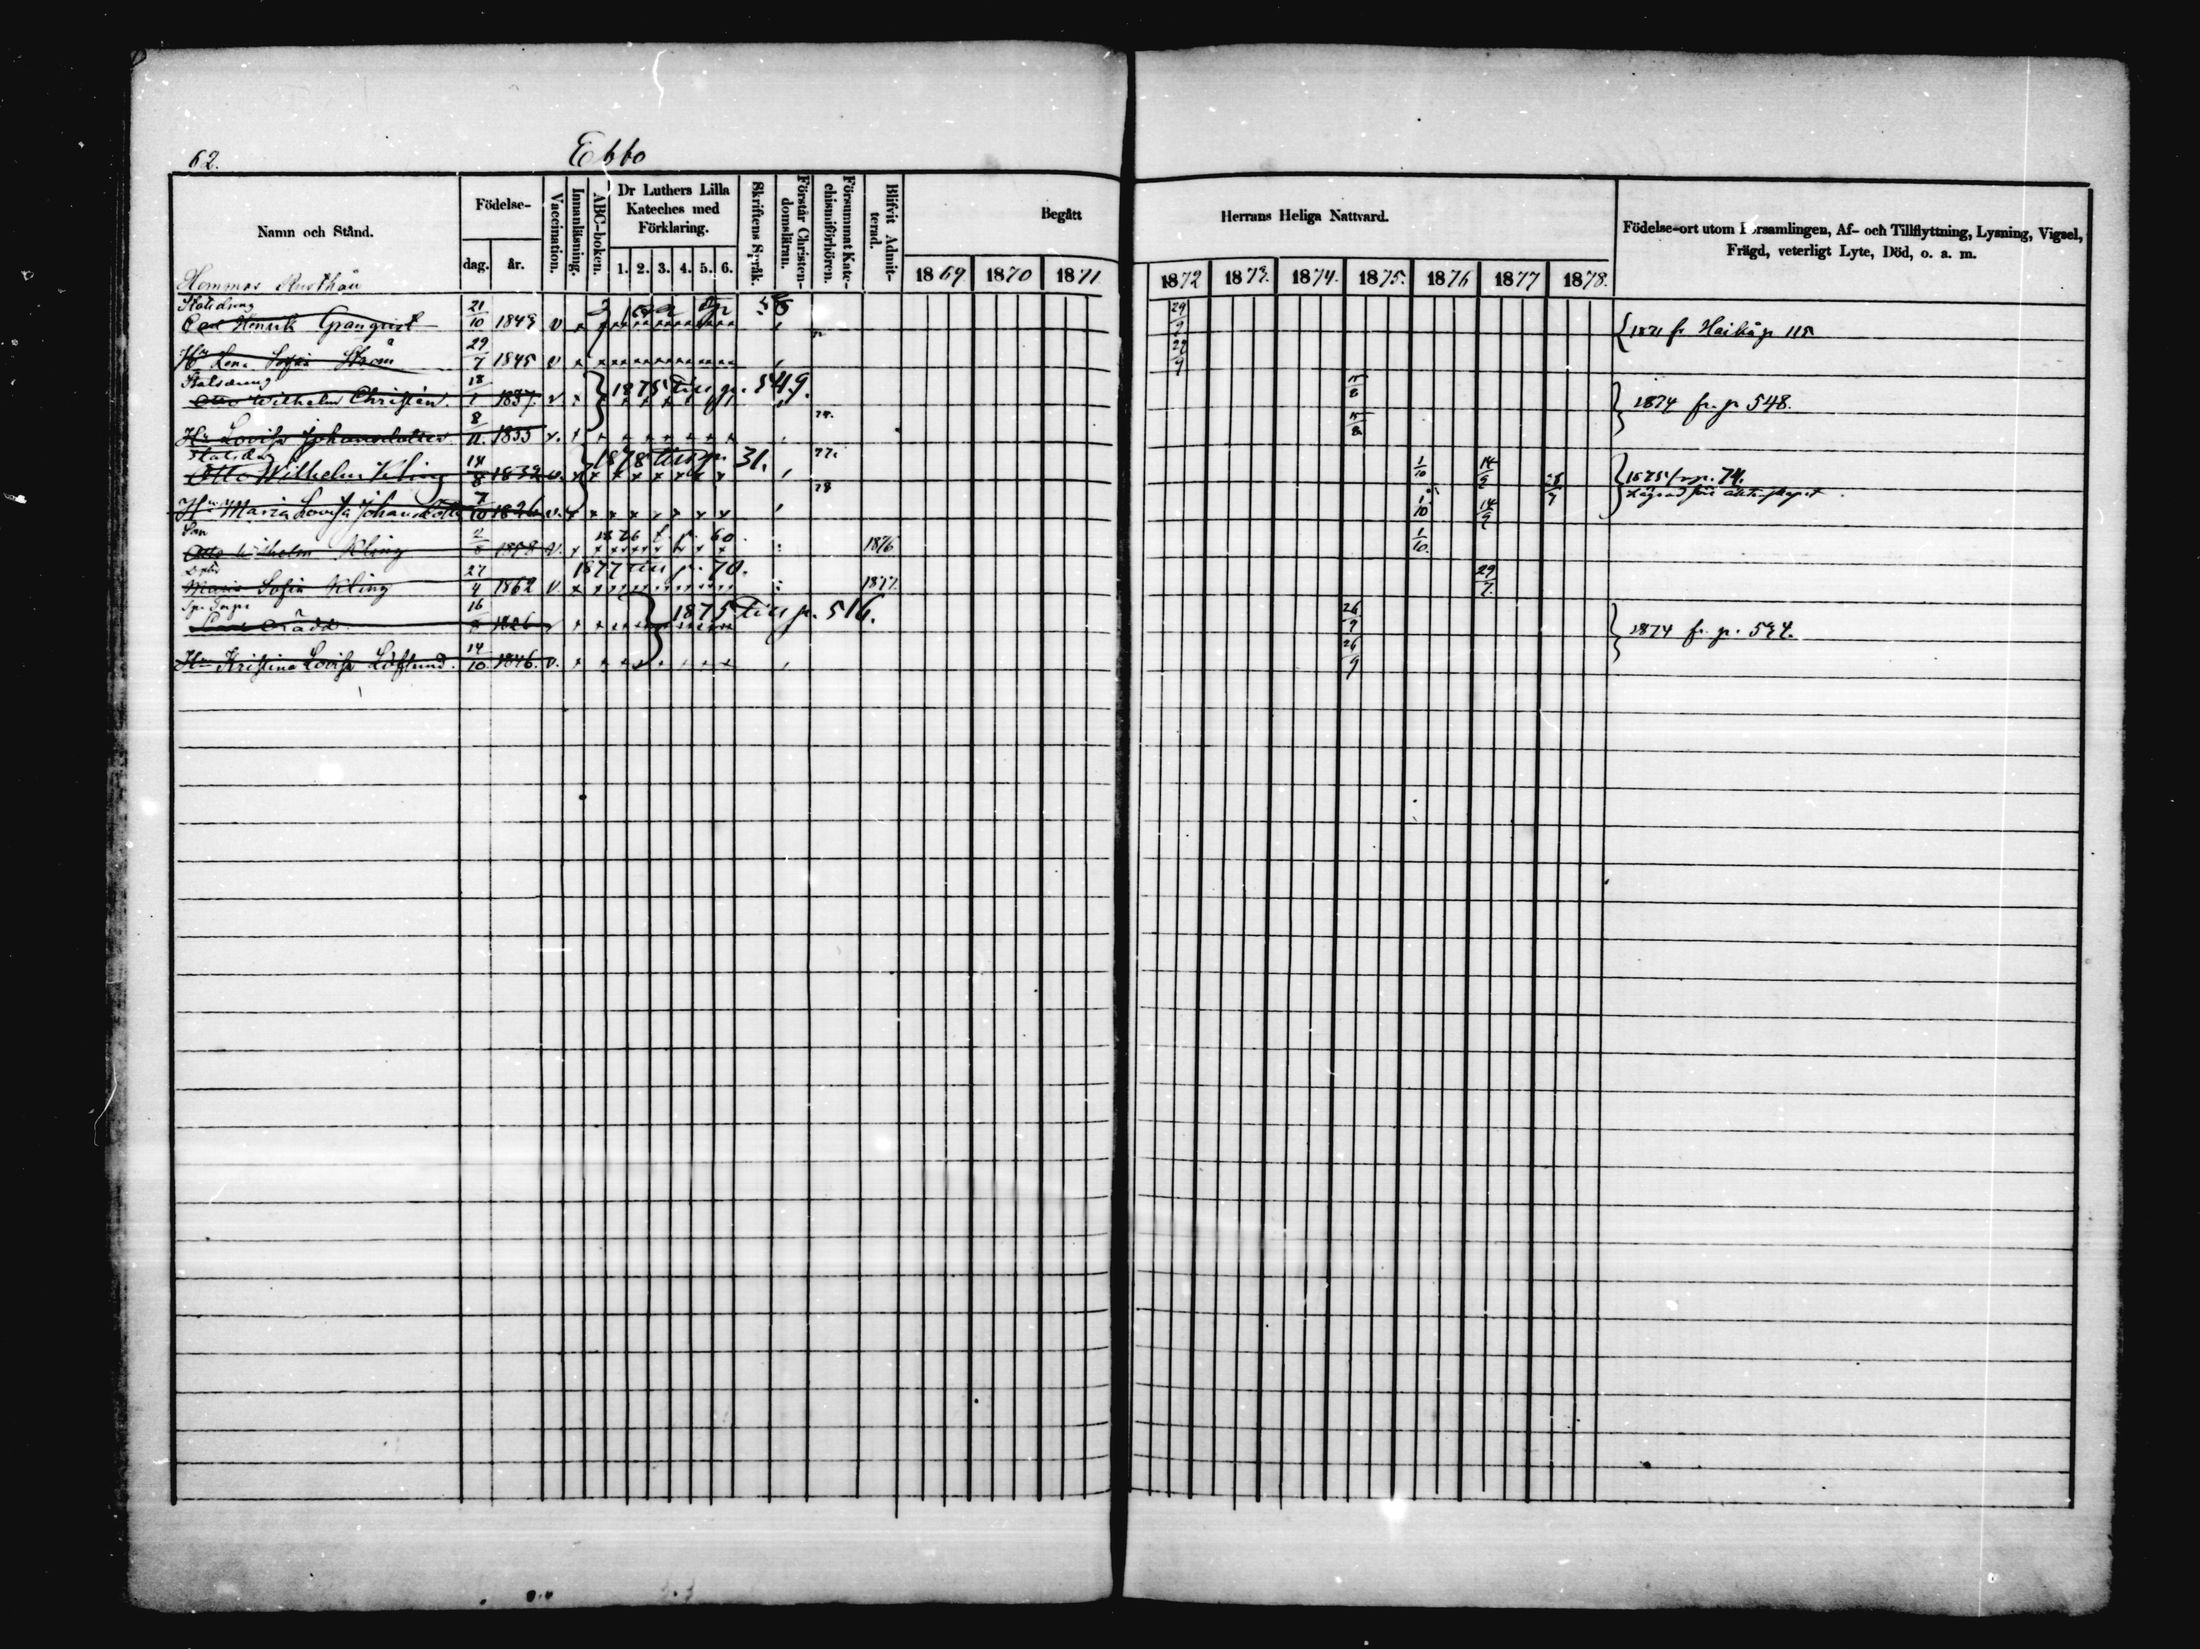 62.
Ebbo
Namn och Stånd.
Födelse-
dag.
år.
Vaccination.
Innanläsning.
ABC-boken.
Dr Luthers Lilla
Kateches med
Förklaring.
1. 2. 3. 4. 5. 6.
Skriftens Språk.
Förstår Christen-
domsläran.
Försummat Kate-
chismiförhören.
Blifvit Admit-
terad.
Begått
Herrans Heliga Nattvard.
1869. 1870 1871
1872 1873. 1874. 1875. 1876 1877 1878.
Födelse-ort utom Församlingen, Af- och Tillflyttning, Lysning, Vigsel,
Frägd, veterligt Lyte, Död, o. a. m.
Hommas Rusthåll
Statsdreng
Carl Henrik Granqvist 21/10 1849 v 29/9 1871 fr. Haikå p. 115
Hu Lena Sofia Ström 29/7 1845 v 29/9
Statsdreng
Otto Wilhelm Christén. 18/1 1837. v 1875 till p. 549. 15/8 1874 fr. p. 548.
Hu Lovisa Johansdotter 8/11. 1835 v. 15/8
Statsdreng
Otto Wilhelm Kling 14/8 1832 v. 1878 till p. 31. 77. 1/10 14/9 1875 fr. p. 74.
Hu Maria Lovisa Johansdotter 7/10 1826 v. 78 1/10 14/9
Son
Otto Wilhelm Kling 1858 v. 1876 t. p. 60. 1876 1/10.
Maria Sofia Kling 27/4 1862 v 1877 till p. 70. 1877. 29/7.
16 1826 1875 till p. 516. 26/9 1874 fr. p. 594.
Hu Kristina Lovisa Löflund. 14/10 1846. v. 26/9